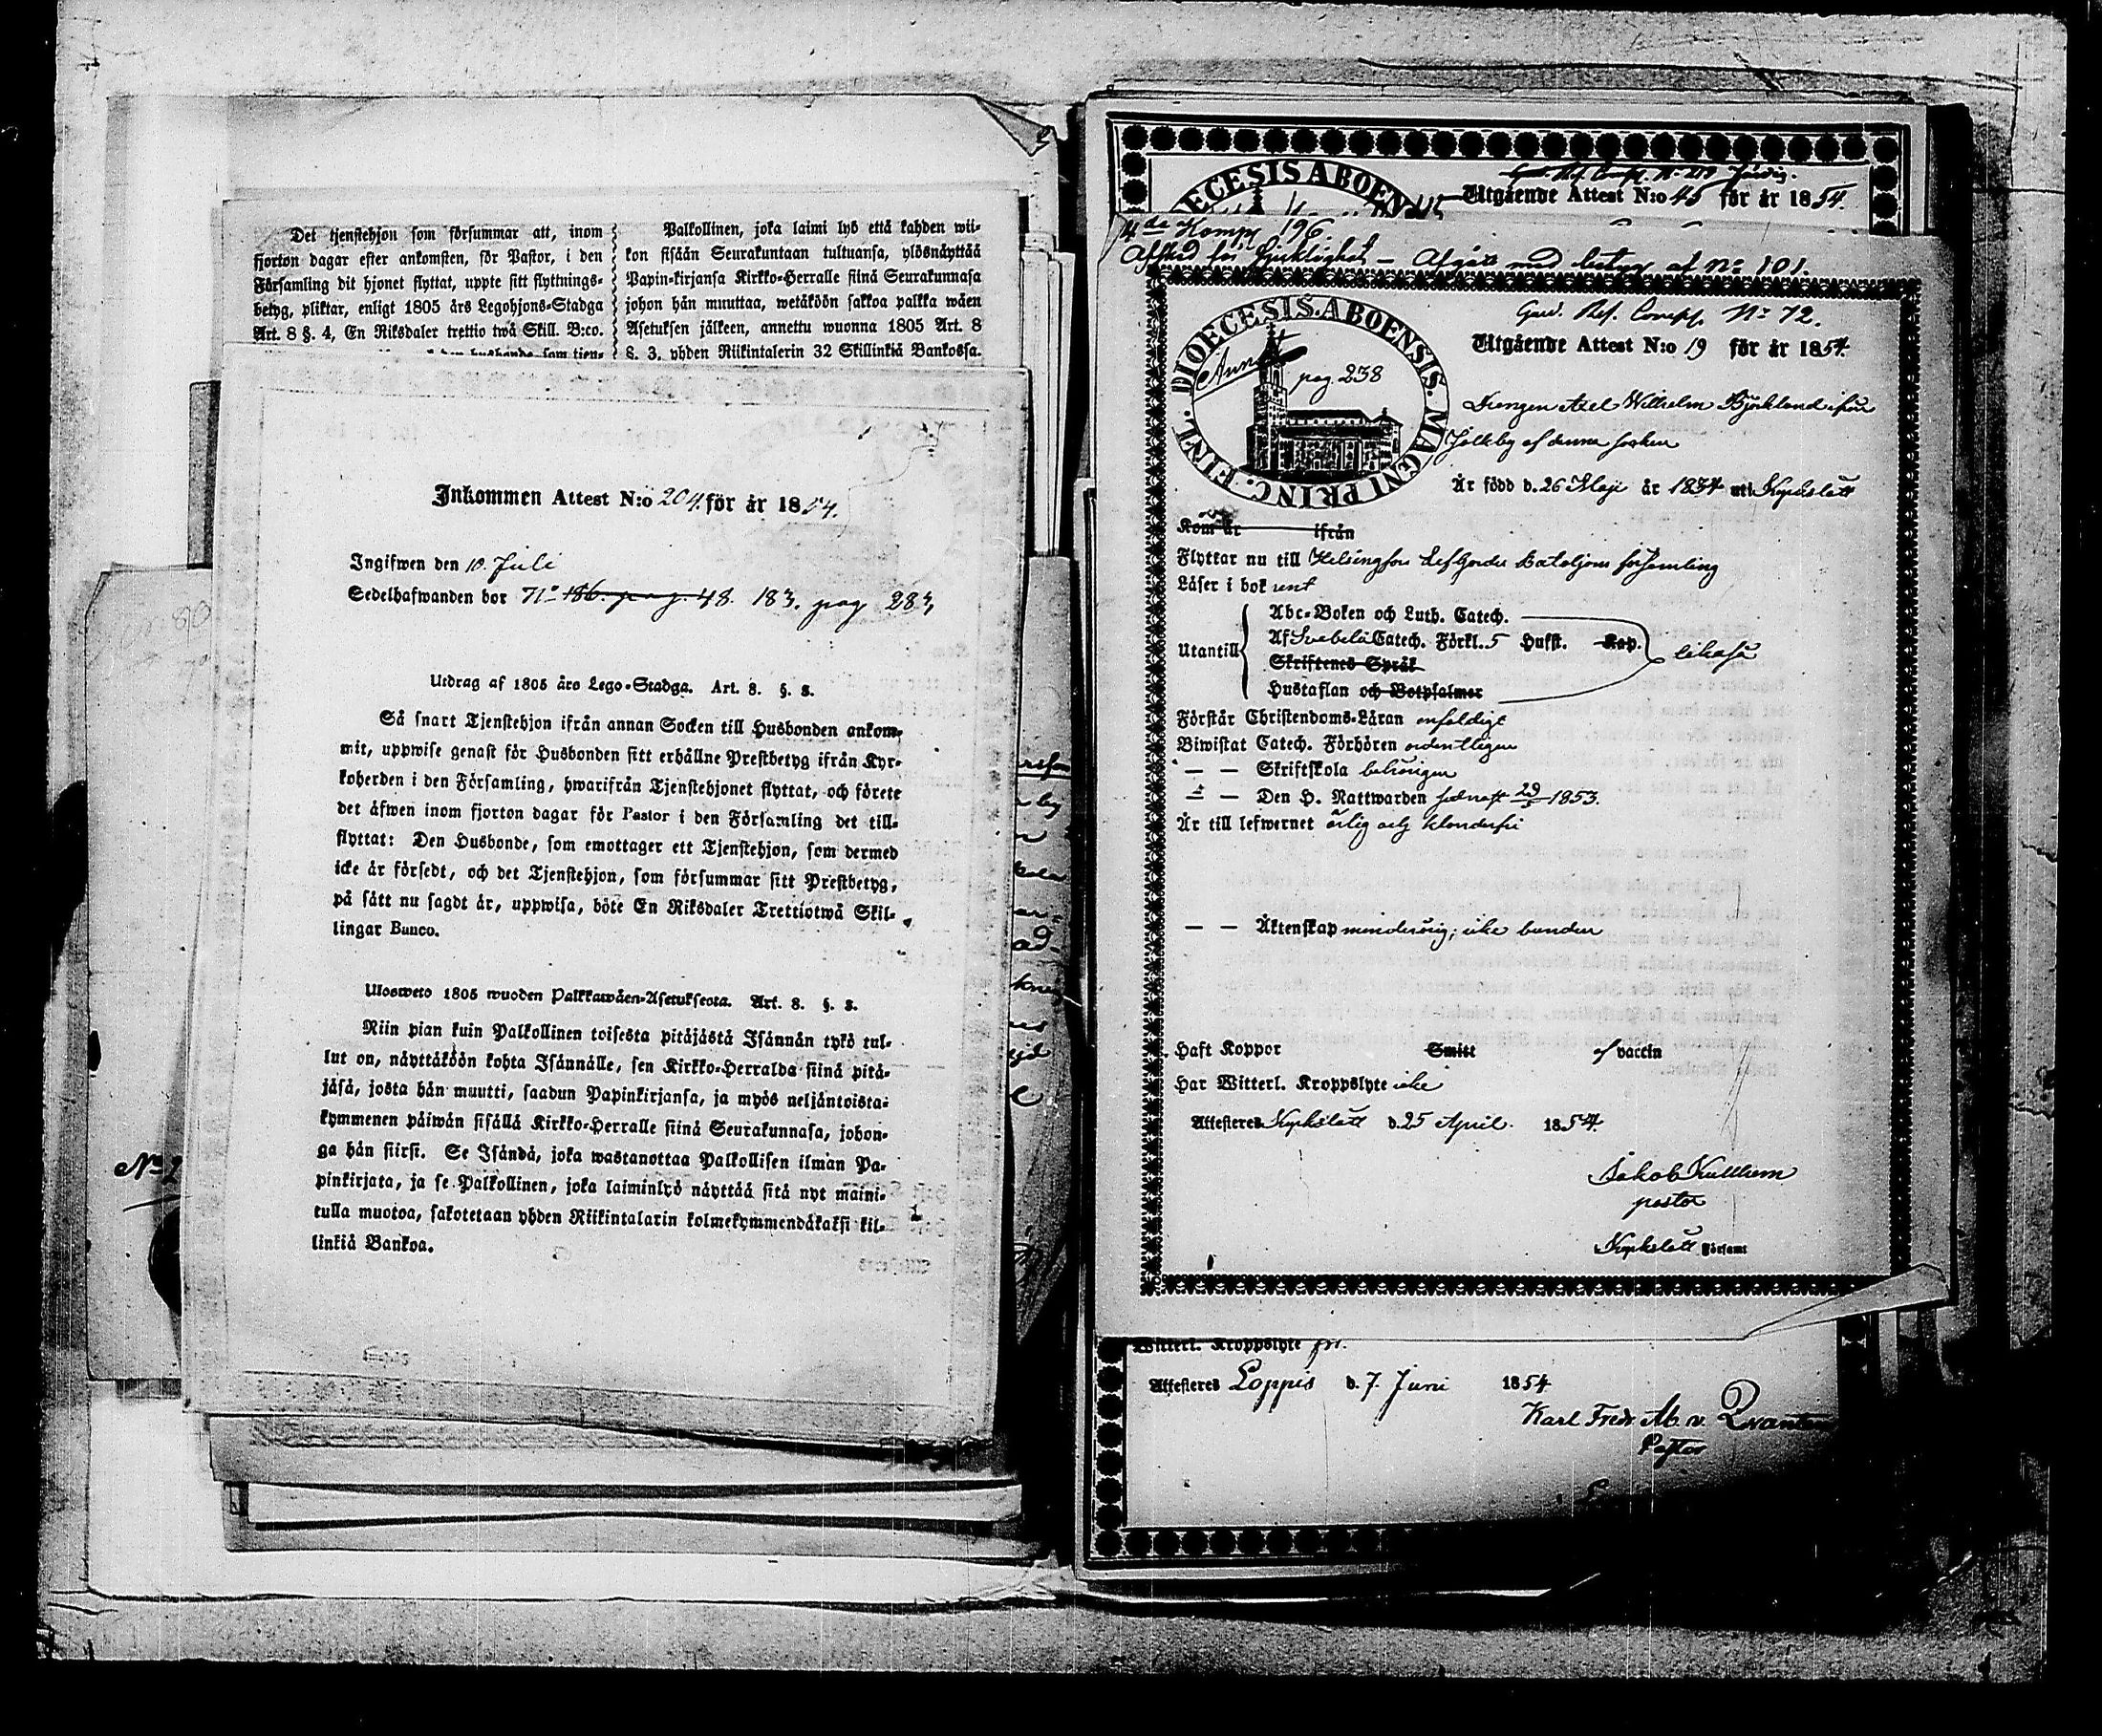 Det tjenstehjon som försummar att, inom
fjorton dagar efter ankomsten, för Pastor, i den
Församling dit hjonet flyttat, uppte sitt flyttnings-
betyg, pliktar, enligt 1805 års Legohjons-Stadga
Art. 8 §. 4, En Riksdaler trettio twå Skill. B:co.
Palkollinen, joka laimi lyö että kahden wii-
kon sisään Seurakuntaan tultuansa, ylösnäyttää
Papin-kirjansa Kirkko-Herralle siinä Seurakunnasa
johon hän muuttaa, wetäköön sakkoa palkka wäen
Asetuksen jälkeen, annettu wuonna 1805 Art. 8
§. 3. yhden Riikintalerin 32 Skillinkiä Bankossa.
Inkommen Attest N:o 204. för år 1854.
Ingifwen den 10. Juli
Sedelhafwanden bor No 186. pag. 48. 183. pag 283,
Utdrag af 1805 års Lego-Stadga. Art. 8. §. 3.
Så snart Tjenstehjon ifrån annan Socken till Husbonden ankom-
mit, uppwise genast för Husbonden sitt erhållne Prestbetyg ifrån Kyr-
koherden i den Församling, hwarifrån Tjenstehjonet flyttat, och förete
det äfwen inom fjorton dagar för Pastor i den Församling det till-
flyttat: Den Husbonde, som emottager ett Tjenstehjon, som dermed
icke är försedt, och det Tjenstehjon, som försummar sitt Prestbetyg,
på sätt nu sagdt är, uppwisa, böte En Riksdaler Trettiotwå Skil-
lingar Banco.
Ulosweto 1805 wuoden Palkkawäen-Asetuksesta. Art. 8. §. 3.
Niin pian kuin Palkollinen toisesta pitäjästä Isännän tykö tul-
lut on, näyttäköön kohta Isännälle, sen Kirkko-Herralda siinä pitä-
jäsä, josta hän muutti, saadun Papinkirjansa, ja myös neljäntoista-
kymmenen päiwän sisällä Kirkko-Herralle siinä Seurakunnasa, johon-
ga hän siirsi. Se Isändä, joka wastanottaa Palkollisen ilman Pa-
pinkirjata, ja se Palkollinen, joka laiminlyö näyttää sitä nyt maini-
tulla muotoa, sakotetaan yhden Riikintalarin kolmekymmendäkaksi kil-
linkiä Bankoa.
DIOECESIS ABOENSIS
Utgående Attest N:o 45 för år 1854.
4de Komp 196.
Afsked för sjuklighet — Afgått med betyg af No 101.
DIOECESIS. ABOENSIS. MAGNI PRINC. FINL.
pag. 238
Gard. Res. Comp. No 72.
Utgående Attest N:o 19 för år 1854.
Drengen Axel Wilhelm Björklund ifrån
Jolkby af denna socken
Är född d. 26 Maji år 1834 uti Kyrkslätt
Kom år ifrån
Flyttar nu till Helsingfors Lifgardes Bataljons församling
Läser i bok rent
Utantill
Abc-Boken och Luth. Catech.
Af Svebelii Catech. Förkl. 5 Hufst. Kap.
Skriftenes Språk
Hustaflan och Botpsalmer
likaså
Förstår Christendoms-Läran enfaldigt
Biwistat Catech. Förhören ordentligen
— — Skriftskola behörigen
— — Den H. Nattwarden sednast 29 1853.
Är till lefwernet ärlig och klanderfri
— — Äktenskap minderårig; icke bunden
Haft Koppor Smitt af vaccin
Har Witterl. Kroppslyte icke
Attesteres Kyrkslätt d. 25 April. 1854.
Jakob Kullhem
pastor
Kyrkslätt Församl
Witterl. Kroppslyte fri.
Attesteres Loppis d. 7. Juni 1854
Karl Fredr. Ab. v. Qvanten
Pastor